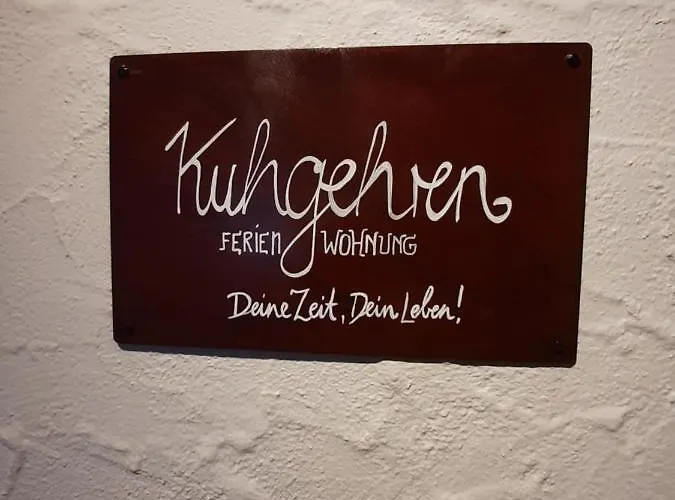 Kuhgehren
FERIEN WOHNUNG
Deine Zeit, Dein Leben!